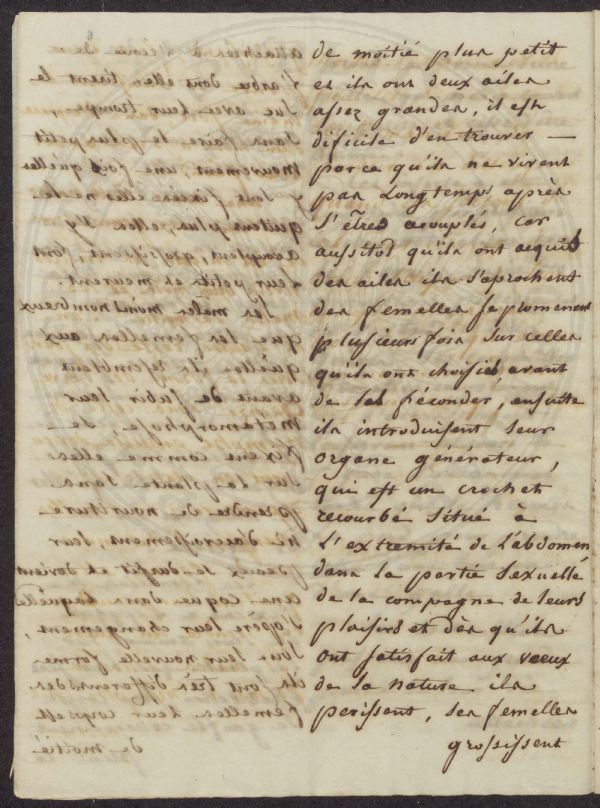 de moitié plus petit
et ils ont deux ailes
assez grandes, il est
dificile d'en trouver —
parce qu'ils ne vivent
pas Longtemps après
s'êtres acouplés, car
aussitot qu'ils ont acquis
des ailes ils s'aprochent
des femelles se promenent
plusieurs fois sur celles
qu'ils ont choisies, avant
de les féconder, ensuitte
ils introduisent leur
organe générateur,
qui est un crochet
recourbé situé à
L'extremité de L'abdomen
dans la partie sexuelle
de la compagne de leurs
plaisirs et dès qu'ils
ont satisfait aux voeux
de la nature ils
perissent, les femelles
grossissent